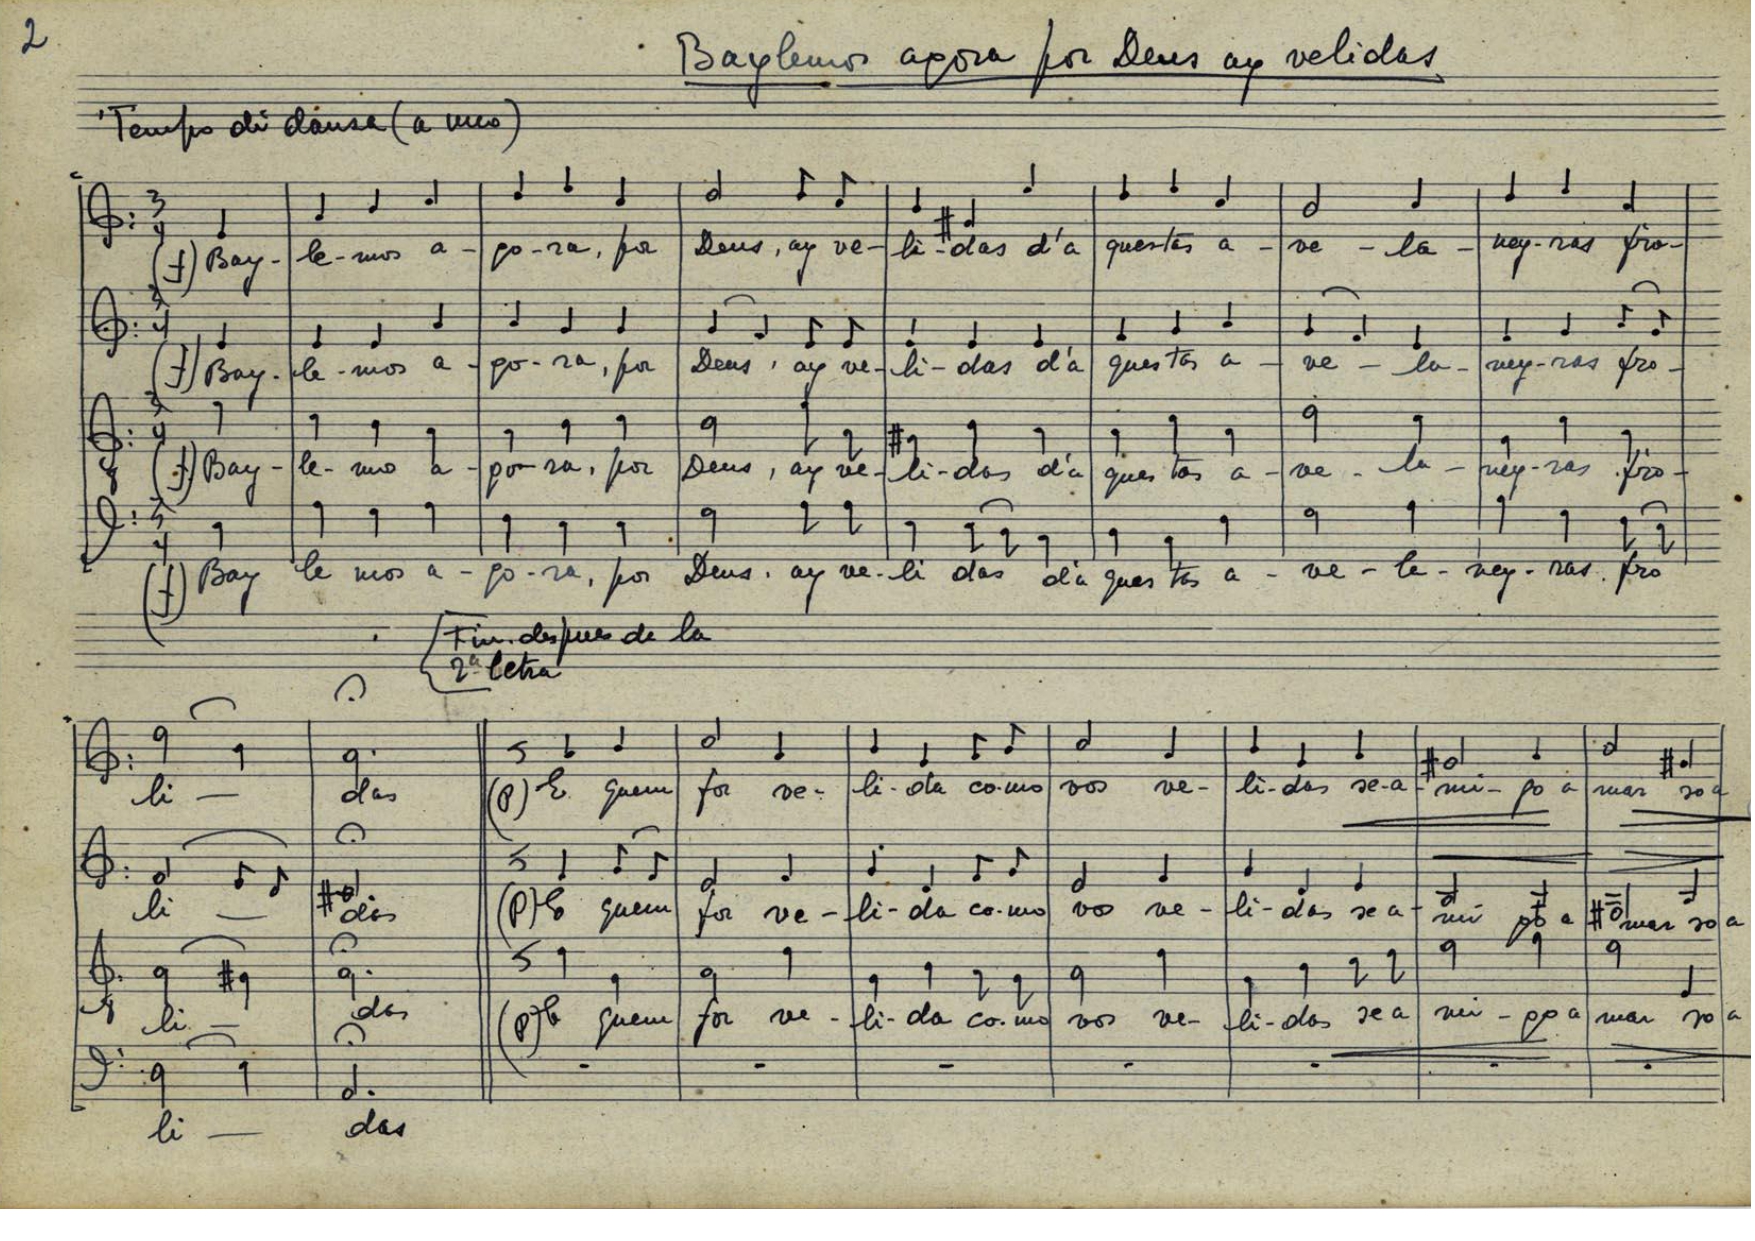 2
Baylemos agora por Deus ay velidas
Tempo di dansa (a uno)
3 4
(f) Bay - le - mos a - go - ra, por Deus, ay ve - li - das d'a questas a - ve - la - ney - ras fro -
3 4
(f) Bay - le - mos a - go - ra, por Deus, ay ve - li - das d'a questas a - ve - la - ney - ras fro -
3 4
8 (f) Bay - le - mo a - go - ra, por Deus, ay ve - li - das d'a ques tas a - ve - la - ney - ras fro -
3 4
(f) Bay le mos a - go - ra, por Deus, ay ve - li das d'a ques tas a - ve - le - ney - ras fro
Fin. despues de la
2ª letra
li — das (p) E quem for ve - li - da co - mo vos ve - li - das se - a - mi - go a mar so a
li — das (p) E quem for ve - li - da co - mo vos ve - li - das se a - mi go a mar so a
8 li — das (p) E quem for ve - li - da co - mo vos ve - li - das se a mi - go a mar so a
li — das